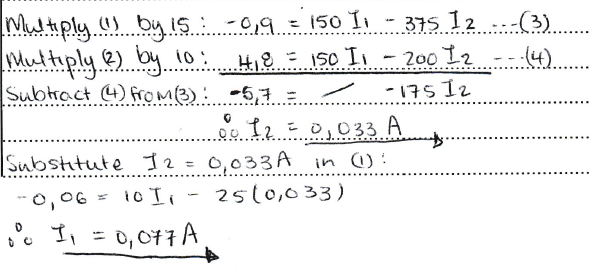 Multiply (1) by 15: -0,9 = 150 I1 - 375 I2 ---(3)
Multiply (2) by 10: 4,8 = 150 I1 - 200 I2 ---(4)
Subtract (4) from (3): -5,7 = / -175 I2
∴ I2 = 0,033 A
Substitute I2 = 0,033A in (1):
-0,06 = 10 I1 - 25(0,033)
∴ I1 = 0,077A